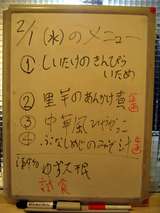 2/1 (水)のメニュー
① しいたけのきんぴら
いため
② 里芋のあんかけ煮
③ 中華風ひややっこ
④ ぶなしめじのみそ汁
大根
試食